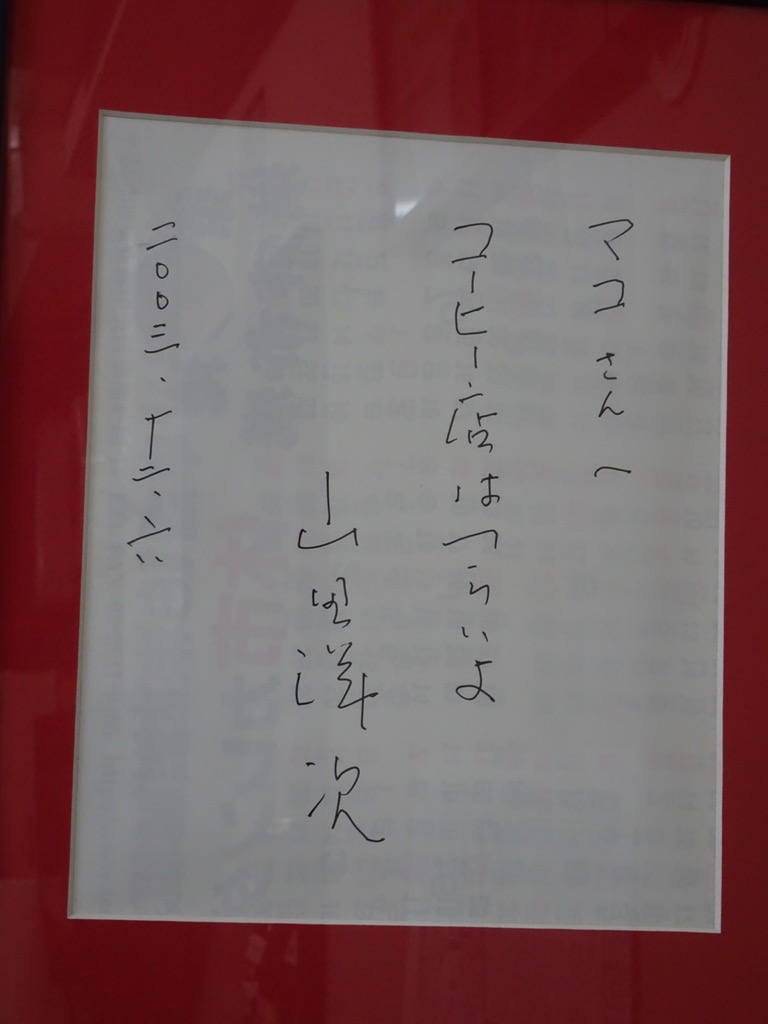 マコさんへ
コーヒー店はつらいよ
山田洋次
二〇〇三・十二・六